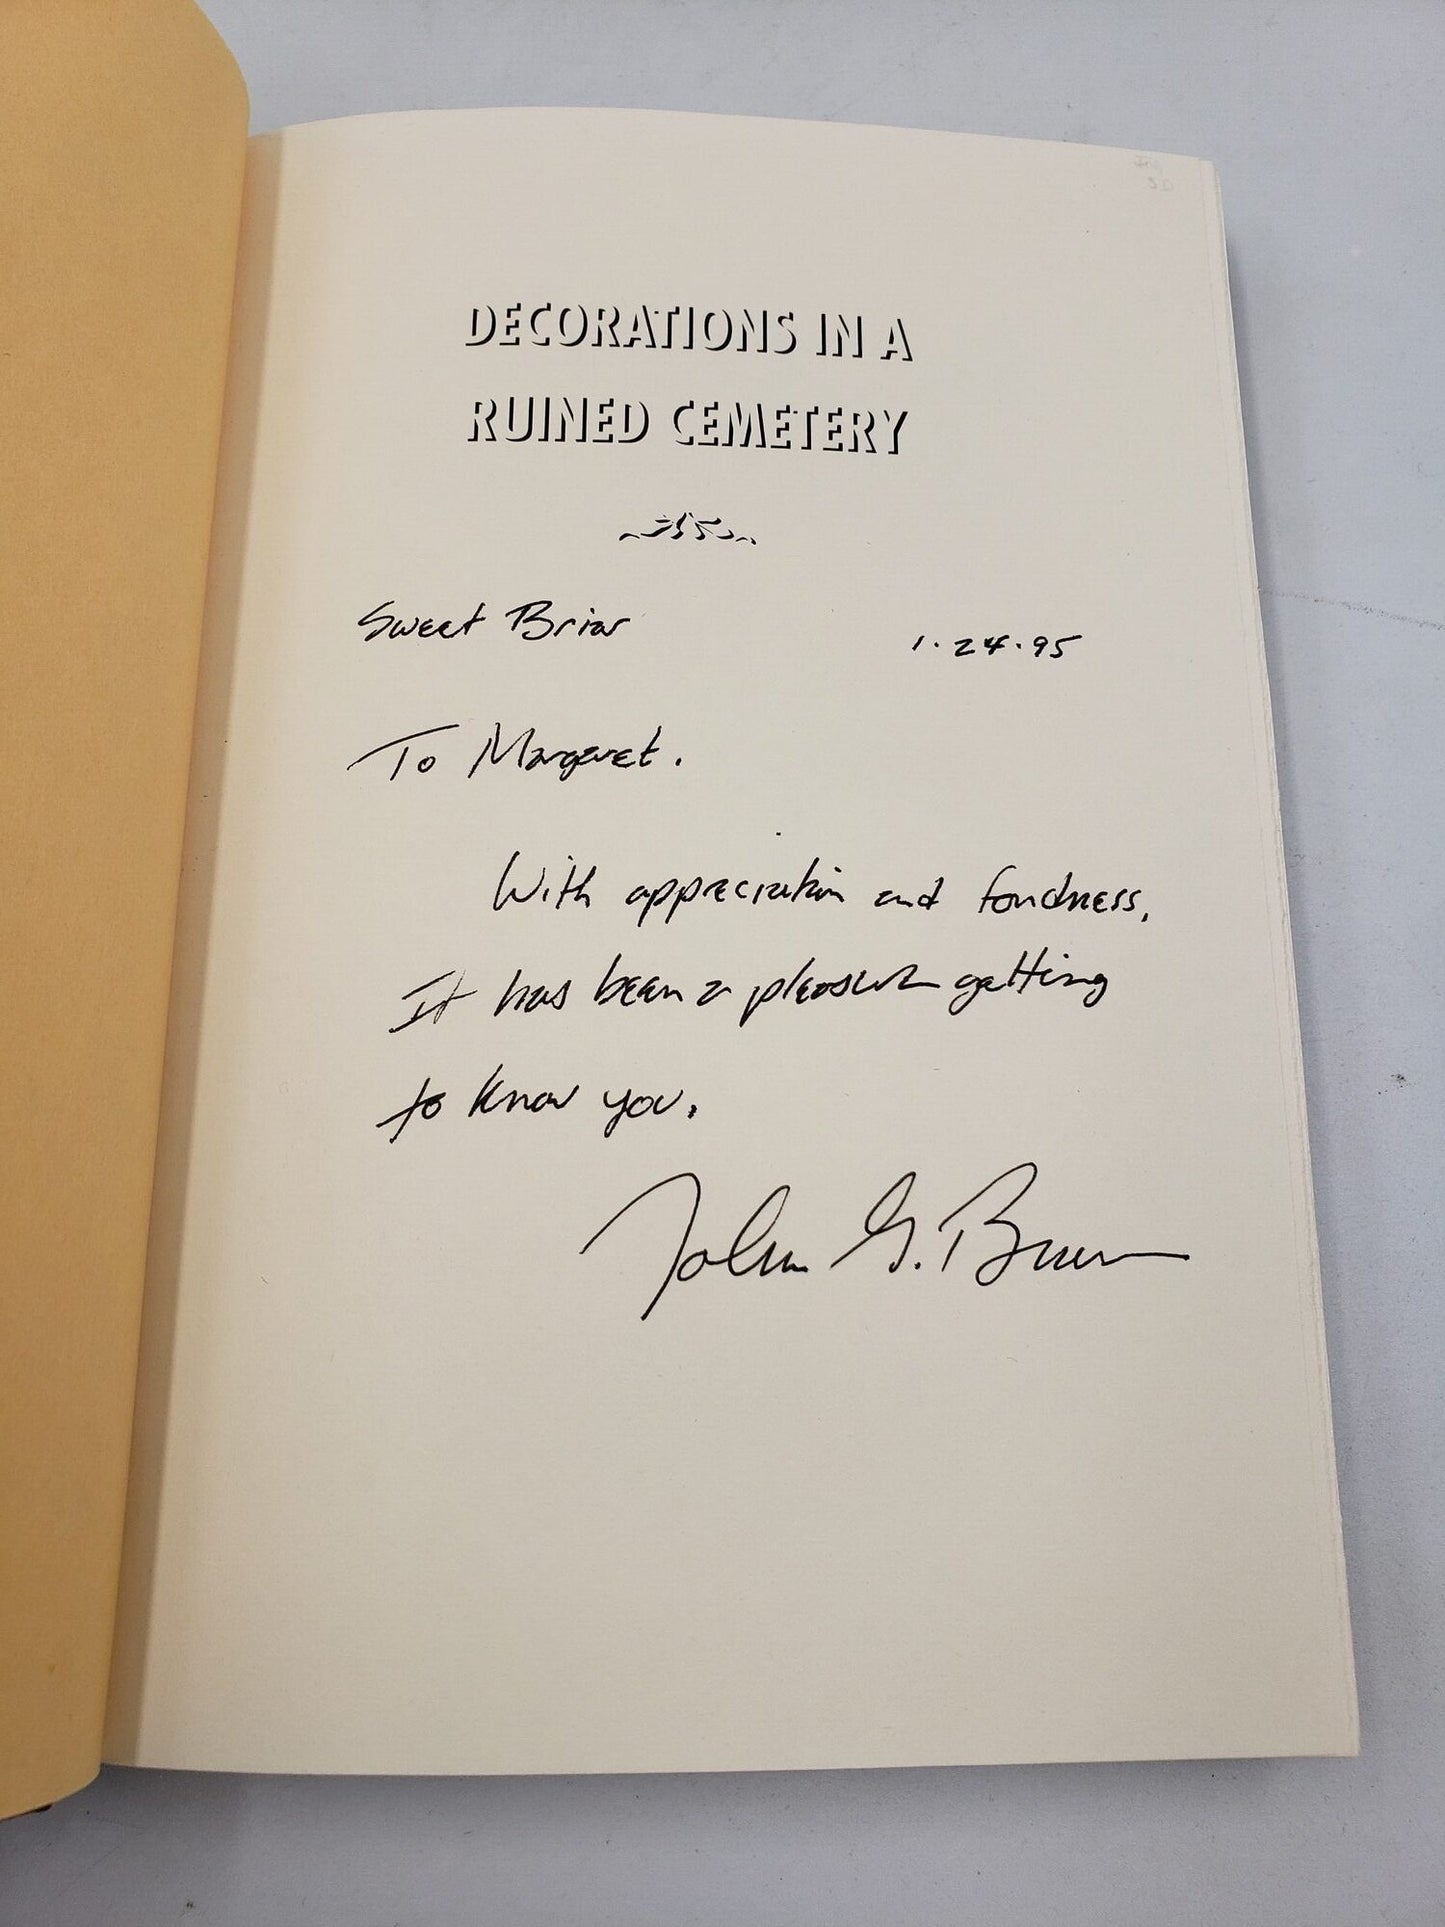 DECORATIONS IN A
RUINED CEMETERY
Sweet Briar 1·24·95
To Margaret.
With appreciation and fondness.
It has been a pleasure getting
to know you.
John G. Brown